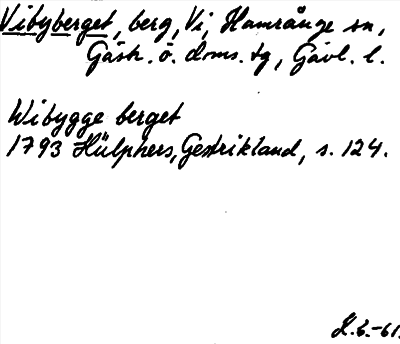 Vibyberget, berg, Vi, Hamrånge sn,
Gästr. ö. doms. tg, Gävl. l.
Wibygge berget
1793 Hülphers, Gestrikland, s. 124.